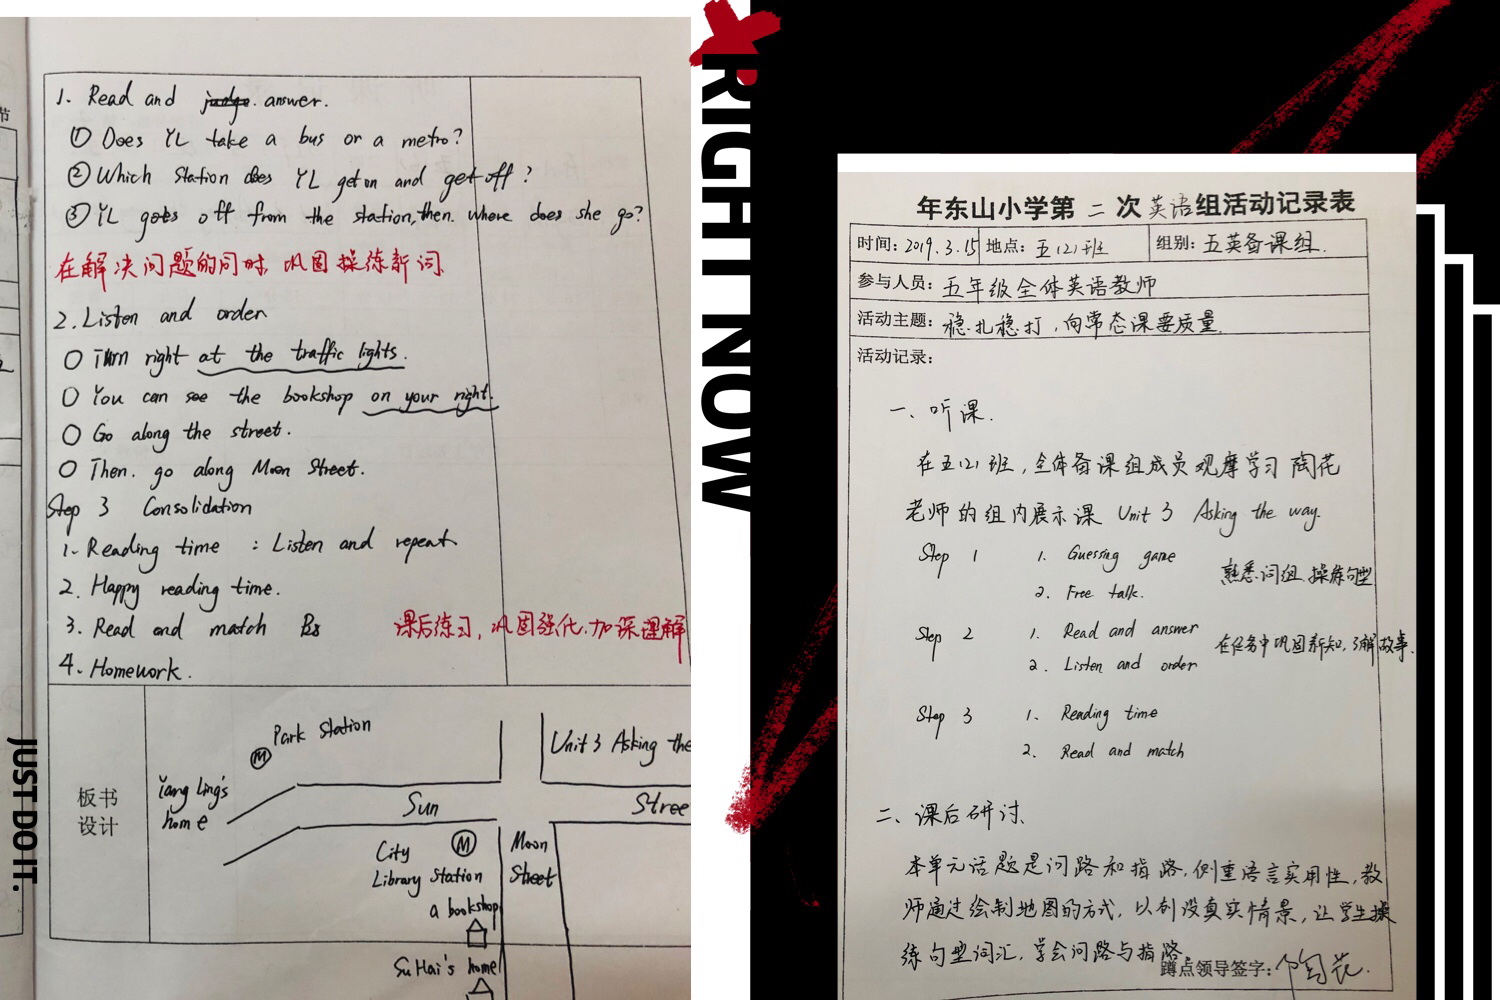 节
1. Read and judge. answer.
① Does YL take a bus or a metro?
② Which station does YL get on and get off?
③ YL gets off from the station, then. where does she go?
在解决问题的同时, 巩固操练新词
2. Listen and order
○ Turn right at the traffic lights.
○ You can see the bookshop on your right.
○ Go along the street.
○ Then. go along Moon Street.
Step 3 Consolidation
1. Reading time : Listen and repeat
2. Happy reading time.
3. Read and match
课后练习, 巩固强化.加深理解
4. Homework.
板书
设计
Park Station
M
Unit 3 Asking the
Yang Ling's
home
Sun
Stree
City
Library Station
M
Moon
Street
a bookshop
Su Hai's home
JUST DO IT.
RIGHT NOW
年东山小学第 二 次 英语组活动记录表
时间: 2019.3.15 地点: 五(2)班 组别: 五英备课组.
参与人员: 五年级全体英语教师
活动主题: 稳扎稳打,向常态课要质量.
活动记录:
一、听课.
在五(2)班,全体备课组成员观摩学习陶花
老师的组内展示课 Unit 3 Asking the way.
Step 1 1. Guessing game
熟悉词组,操练句型
2. Free talk.
Step 2 1. Read and answer
在任务中巩固新知,了解故事.
2. Listen and order
Step 3 1. Reading time
2. Read and match
二、课后研讨、
本单元话题是问路和指路,侧重语言实用性,教
师通过绘制地图的方式,以创设真实情景,让学生操
练句型词汇,学会问路与指路.
蹲点领导签字: 陶花.